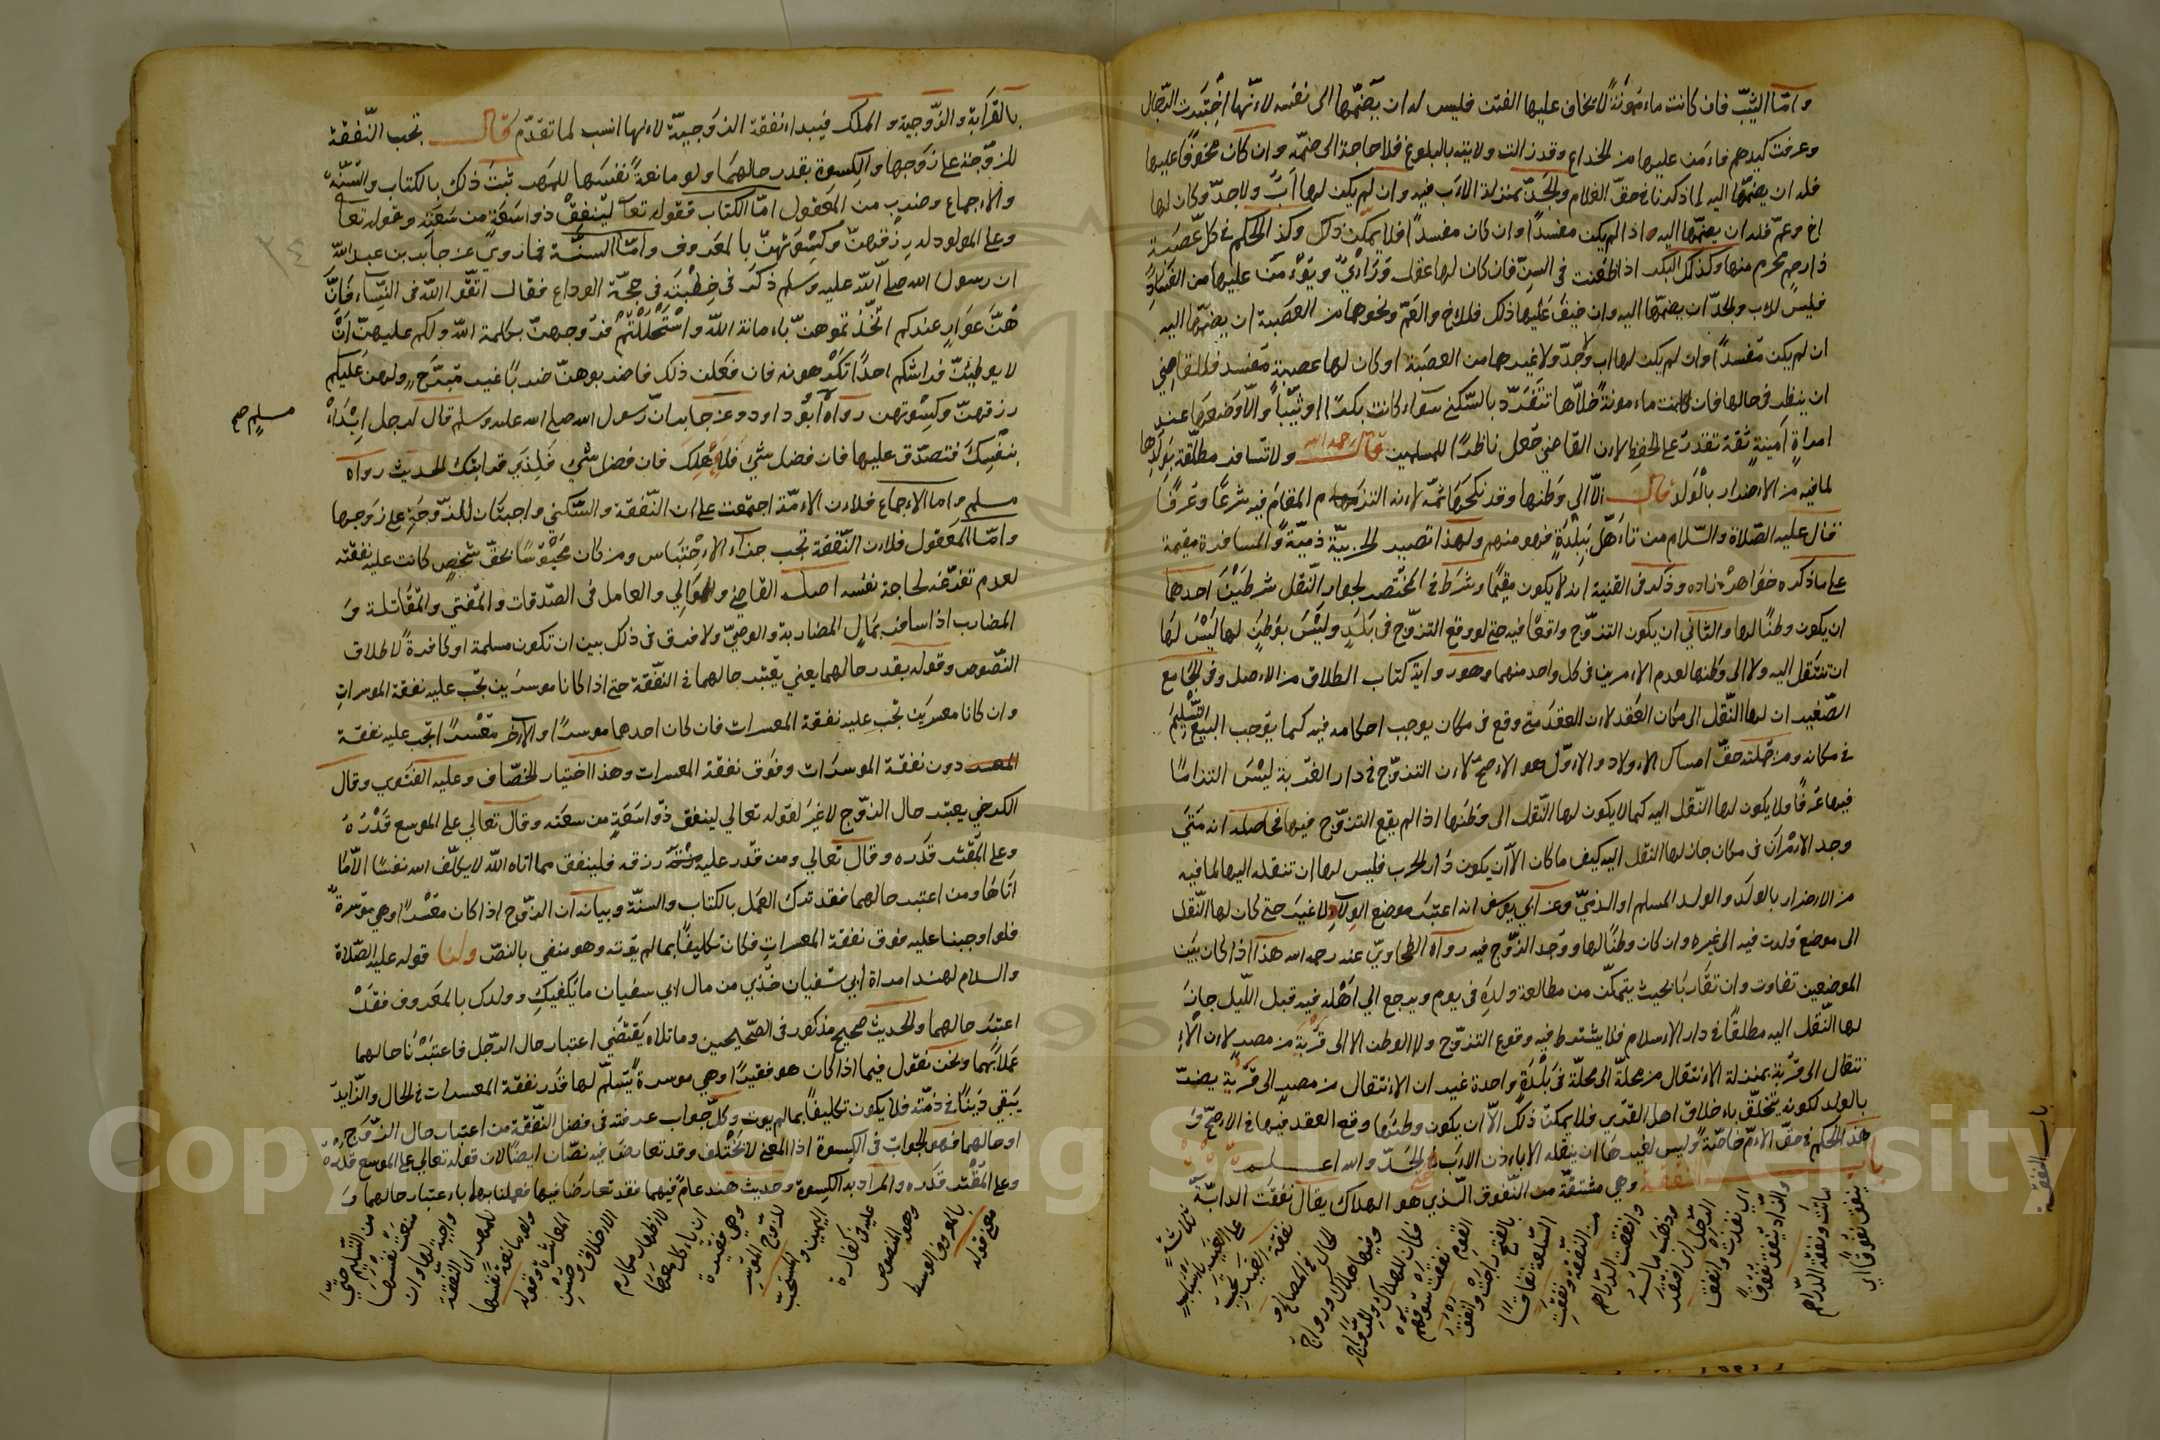 وامّا الثيّب فان كانت مأمونةً لا يخاف عليها الفتن فليس له ان يضمّها الى نفسه لانّها اختبرت الرّجال
وعرفت كيدهم فأمن عليها من الخداع وقد زالت ولايته بالبلوغ فلا حاجة الى ضمّه وان كان مخوفًا عليها
فله ان يضمّها اليه لما ذكرنا في حقّ الغلام والجدّ بمنزلة الاب فيه وان لم يكن لها ابٌ ولا جدّ وكان لها
اخ وعمّ فله ان يضمّها اليه اذا لم يكن مفسدًا وان كان مفسدًا فلا يمكّن ذلك وكذا الحكم في كلّ عصبة
ذا رحم محرم منها وكذلك البكر اذا طعنت في السنّ فان كان لها عقل ورأيٌ ويؤمن عليها من الفساد
فليس للاب والجدّ ان يضمّها اليه وان خيف عليها ذلك فللاخ والعمّ ونحوهما من العصبة ان يضمّها اليه
ان لم يكن مفسدًا وان لم يكن لها اب ولا جدّ ولا غيرهما من العصبة او كان لها عصبة مفسد فللقاضي
ان ينظر في حالها فان كانت مأمونة خلّاها تتفرّد بالسّكنى سواء كانت بكرًا او ثيّبًا والّا وضعها عند
امرأةٍ امينةٍ ثقة تقدر على الحفظ لان القاضي جعل ناظرًا للمسلمين قال رحمه الله ولا تسافر مطلّقة بولدها
لما فيه من الاضرار بالولد قال الّا الى وطنها وقد نكحها ثمّة لانه التزم المقام فيه شرعًا وعرفًا
قال عليه الصّلاة والسّلام من تأهّل ببلدةٍ فهو منهم ولهذا تصير الحربيّة ذميّةً والمسافرة مقيمة
على ما ذكره خواهر زاده وذكر في القنية انه لا يكون مقيمًا وشرط في المختصر لجواز النّقل شرطين احدهما
ان يكون وطنًا لها والثاني ان يكون التزوّج واقعًا فيه حتى لو وقع التزوّج في بلدٍ وليس بوطنٍ لها ليس لها
ان تنتقل اليه ولا الى وطنها لعدم الامرين في كل واحد منهما وهو رواية كتاب الطلاق من الاصل وفي الجامع
الصّغير ان لها النّقل الى مكان العقد لان العقد متى وقع في مكان يوجب احكامه فيه كما يوجب البيع التسليم
في مكانه ومن جملته حقّ امساك الاولاد والاوّل هو الاصحّ لان التزوّج في دار الغربة ليس التزامًا
فيها عرفًا ولا يكون لها النّقل اليه كما لا يكون لها النّقل الى وطنها اذا لم يقع التزوّج فيها فحاصله انه متى
وجد الامران في مكان جاز لها النّقل اليه كيف ما كان الّا ان يكون دار الحرب فليس لها ان تنقله اليها لما فيه
من الاضرار بالولد والولد المسلم او الذميّ وعن ابي يوسف انه اعتبر موضع الولاد لا غير حتى كان لها النّقل
الى موضع ولدت فيه الى غيره وان كان وطنًا لها ووجد الزّوج فيه رواه الطحاويّ عنه رحمه الله هذا اذا كان بين
الموضعين تفاوت وان تقاربا بحيث يتمكّن من مطالعة ولده في يوم ويرجع الى اهله فيه قبل اللّيل جاز
لها النّقل اليه مطلقًا في دار الاسلام فلا يشترط فيه وقوع التزوّج ولا الوطن الا الى قرية من مصرٍ لان الا
نتقال الى قرية بمنزلة الانتقال من محلّة الى محلّة في بلدةٍ واحدة غير ان الانتقال من مصر الى قرية يضرّ
بالولد لكونه يتخلّق باخلاق اهل القرى فلا يمكنّ ذلك الّا ان يكون وطنها وقع العقد فيها في الاصحّ و
هذا الحكم في حقّ الامّ خاصّة وليس لغيرها ان ينقله الا باذن الاب الجدّ والله اعلم
باب النفقة وهي مشتقّة من النّفوق الّذي هو الهلاك يقال نفقت الدابّة
تنفق نفوقًا اي
ماتت ونفقة الدّراهم
والزّاد ينفق نفوقًا
اي نفدت وانفق
الرّجل ان افتقر
وذهب ماله
وانفقت الدّراهم
من النّفقة ونفقت
السّلعة نفاقًا
بالفتح راجت وانفق
القوم نفقت سوقهم
فكان الهلاك والرّواج
وفيها هلاك ورواج
الحال في المصالح و
نفقة الغير تجب
على الغير باسباب
ثلاثة
باب النفقة
بالقرابة والزّوجيّة والملك فيبدأ بنفقة الزّوجيّة لانها انسب لما تقدّم قال تجب النّفقة
للزّوجة على زوجها والكسوة بقدر حالهما ولو مانعةً نفسها للمهر ثبت ذلك بالكتاب والسّنّة
والاجماع وضرب من المعقول امّا الكتاب فقوله تعا لينفق ذو اسعة من سعته وقوله تعا
وعلى المولود له رزقهنّ وكسوتهنّ بالمعروف وامّا السّنّة فما روي عن جابر بن عبد الله
ان رسول الله صلى الله عليه وسلم ذكر في خطبته في حجّة الوداع فقال اتّقوا الله في النّساء فانّ
هنّ عوانٍ عندكم اتّخذتموهنّ بامانة الله واستحللتم فروجهنّ بكلمة الله ولكم عليهنّ ان
لا يوطئنّ فراشكم احدًا تكرهونه فان فعلن ذلك فاضربوهنّ ضربًا غير مبرّح ولهن عليكم
رزقهنّ وكسوتهن رواه ابو داود وعن جابر انّ رسول الله صلى الله عليه وسلم قال لرجل ابدأ
مسلم صح
بنفسك فتصدّق عليها فان فضل شئ فلاهلك فان فضل شئ فلذي قرابتك الحديث رواه
مسلم واما الاجماع فلان الامّة اجتمعت على ان النّفقة والسّكنى واجبتان للزّوجة على زوجها
وامّا المعقول فلان النّفقة تجب جزاء الاحتباس ومن كان محبوسًا بحقّ شخصٍ كانت عليه نفقته
لعدم تفرّغه لحاجة نفسه اصله القاضي والوالي والعامل في الصّدقات والمفتي والمقاتلة و
المضارب اذا سافر بمال المضاربة والوصيّ ولا فرق في ذلك بين ان تكون مسلمة او كافرةً لاطلاق
النّصوص وقوله بقدر حالهما يعني يعتبر حالهما في النّفقة حتى اذا كانا موسرين تجب عليه نفقة الموسرات
وان كانا معسرين تجب عليه نفقة المعسرات فان كان احدهما موسرًا والآخر معسرًا تجب عليه نفقة
دون نفقة الموسرات وفوق نفقة المعسرات وهذا اختيار الخصّاف وعليه الفتوى وقال
الكرخي يعتبر حال الزّوج لا غير لقوله تعالى لينفق ذو اسعةٍ من سعته وقال تعالى على الموسع قدره
وعلى المقتر قدره وقال تعالى ومن قدّر عليه رزقه فلينفق مما اتاه الله لا يكلّف الله نفسًا الّا ما
اتاها ومن اعتبر حالهما فقد ترك العمل بالكتاب والسنّة وبيانه ان الزّوج اذا كان معسرًا وهي موسرةٌ
فلو اوجبنا عليه فوق نفقة المعسرات فكان تكليفًا بما لم يؤته وهو منفي بالنصّ ولنا قوله عليه الصّلاة
والسلام لهند امرأة ابي سفيان خذي من مال ابي سفيان ما يكفيك وولدك بالمعروف فقد
اعتبر حالهما والحديث صحيح مذكور في الصّحيحين وما تلاه يقتضي اعتبار حال الرّجل فاعتبرنا حالهما
عملًا بهما ونحن نقول فيما اذا كان هو فقيرًا وهي موسرة يسلّم لها قدر نفقة المعسرات في الحال والزّايد
يبقى دينًا في ذمّته فلا يكون تكليفًا بما لم يؤت وكلّ جواب عرفته في فصل النّفقة من اعتبار حال الزّوج
او حالهما فهو الجواب في الكسوة اذا المعنى لا يختلف وقد تعارض فيه نصّان ايضًا لان قوله تعالى على الموسع قدره
وعلى المقتر قدره والمراد به الكسوة وحديث هند عامّ فيهما فقد تعارضا فيها فعملنا بهما باعتبار حالهما و
معنى قوله
بالمعروف الوسط
وهو المنصوص
عليه في كفارة
اليمين والمستحبّ
للزّوج الموسر
وهي فقيرة
ان يأكل معها
لاظهار مكارم
الاخلاق وحسن
المعاشرة وقوله
ولو مانعة نفسها
للمهر اي النّفقة
واجبة لها وان
منعت نفسها
من التّسليم حتى
Copyright © King Saud University